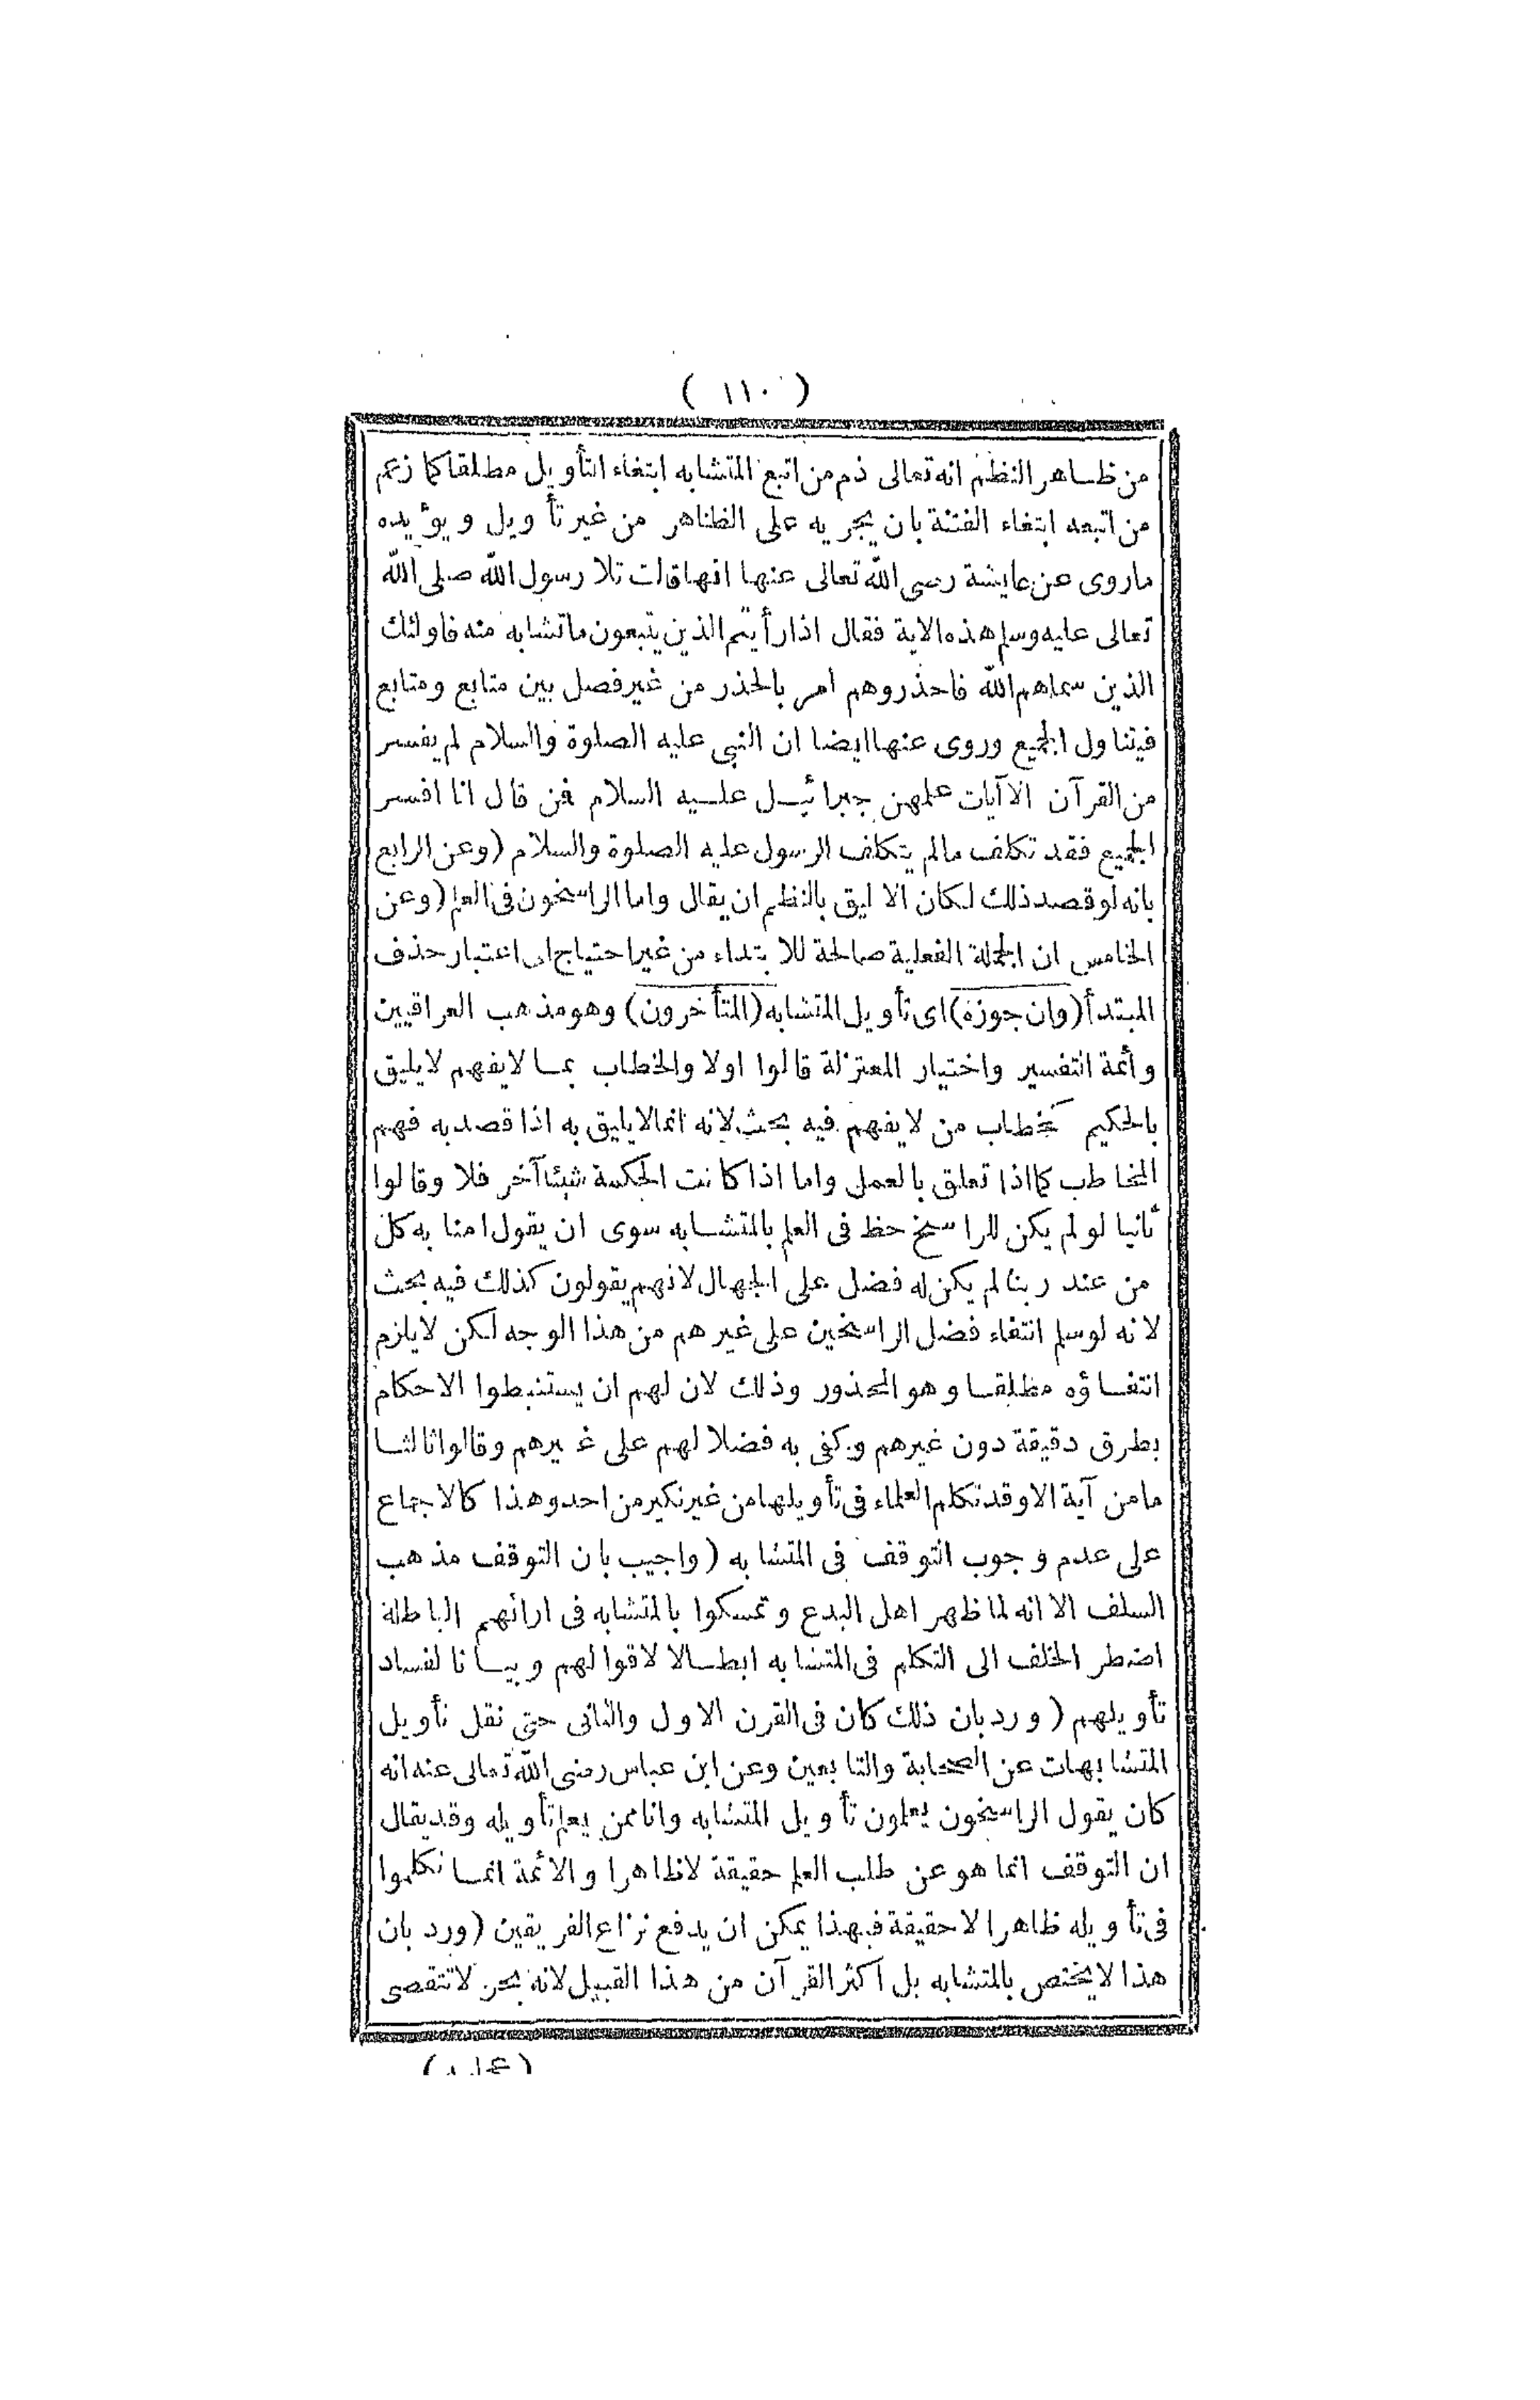 ( ١١٠ )
من ظاهر النظم انه تعالى ذم من اتبع المتشابه ابتغاء التأويل مطلقا كما زعم
من اتبعه ابتغاء الفتنة بان يجريه على الظاهر من غير تأويل ويؤيده
ماروى عن عايشة رضى الله تعالى عنها انها قالت تلا رسول الله صلى الله
تعالى عليه وسلم هذه الاية فقال اذا رأيتم الذين يتبعون ماتشابه منه فاولئك
الذين سماهم الله فاحذروهم امر بالحذر من غير فصل بين متابع ومتابع
فيتناول الجميع وروى عنها ايضا ان النبى عليه الصلوة والسلام لم يفسر
من القرآن الا آيات علمهن جبرائيل عليه السلام فمن قال انا افسر
الجميع فقد تكلف مالم يتكلف الرسول عليه الصلوة والسلام (وعن الرابع
بانه لو قصد ذلك لكان الاليق بالنظم ان يقال واما الراسخون فى العلم (وعن
الخامس ان الجملة الفعلية صالحة للابتداء من غير احتياج الى اعتبار حذف
المبتدأ (وان جوزه) اى تأويل المتشابه (المتأخرون) وهو مذهب العراقيين
وأئمة التفسير واختيار المعتزلة قالوا اولا والخطاب بما لايفهم لايليق
بالحكيم كخطاب من لايفهم فيه بحث لانه انما لايليق به اذا قصد به فهم
المخاطب كما اذا تعلق بالعمل واما اذا كانت الحكمة شيئا آخر فلا وقالوا
ثانيا لو لم يكن للراسخ حظ فى العلم بالمتشابه سوى ان يقول امنا به كل
من عند ربنا لم يكن له فضل على الجهال لانهم يقولون كذلك فيه بحث
لانه لو سلم انتفاء فضل الراسخين على غيرهم من هذا الوجه لكن لايلزم
انتفاؤه مطلقا وهو المحذور وذلك لان لهم ان يستنبطوا الاحكام
بطرق دقيقة دون غيرهم وكفى به فضلا لهم على غيرهم وقالوا ثالثا
مامن آية الا وقد تكلم العلماء فى تأويلها من غير نكير من احد وهذا كالاجماع
على عدم وجوب التوقف فى المتشابه (واجيب بان التوقف مذهب
السلف الا انه لما ظهر اهل البدع وتمسكوا بالمتشابه فى ارائهم الباطلة
اضطر الخلف الى التكلم فى المتشابه ابطالا لاقوالهم وبيانا لفساد
تأويلهم (ورد بان ذلك كان فى القرن الاول والثانى حتى نقل تأويل
المتشابهات عن الصحابة والتابعين وعن ابن عباس رضى الله تعالى عنه انه
كان يقول الراسخون يعلمون تأويل المتشابه وانا ممن يعلم تأويله وقد يقال
ان التوقف انما هو عن طلب العلم حقيقة لاظاهرا والائمة انما تكلموا
فى تأويله ظاهرا لاحقيقة فبهذا يمكن ان يدفع نزاع الفريقين (ورد بان
هذا لايختص بالمتشابه بل اكثر القرآن من هذا القبيل لانه بحر لاتنقصى